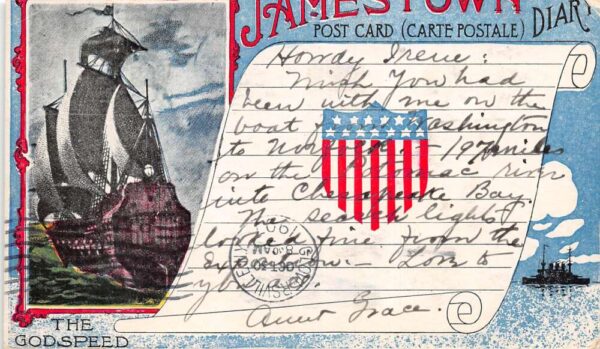 JAMESTOWN
POST CARD (CARTE POSTALE) DIARY
Howdy Irene:
Wish you had
been with me on the
boat from Washington
to Norfolk - 197 miles
on the Potomac river
into Chesapeake Bay.
The search lights
looked fine from the
Exposition. Love to
you all.
Aunt Grace.
THE
GODSPEED